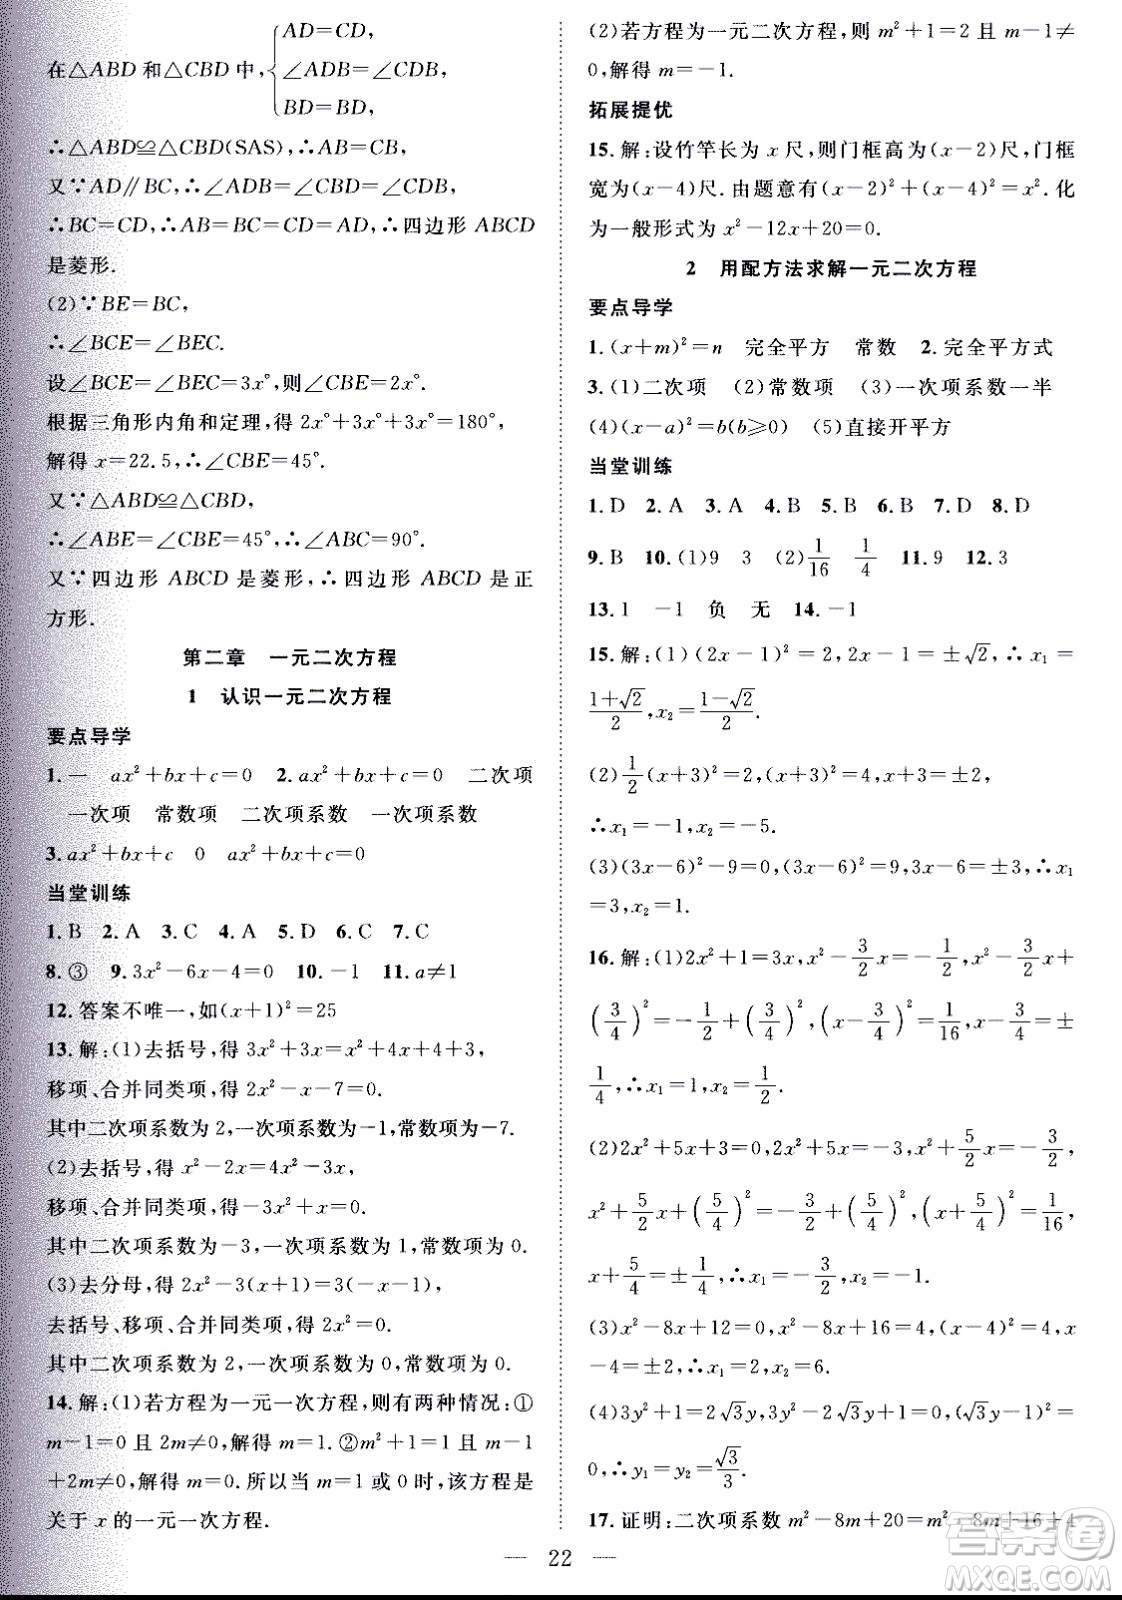 在△ABD 和△CBD 中,
AD=CD,
∠ADB=∠CDB,
BD=BD,
∴△ABD≌△CBD(SAS),∴AB=CB,
又∵AD∥BC,∴∠ADB=∠CBD=∠CDB,
∴BC=CD,∴AB=BC=CD=AD,∴四边形 ABCD
是菱形.
(2)∵BE=BC,
∴∠BCE=∠BEC.
设∠BCE=∠BEC=3x°,则∠CBE=2x°.
根据三角形内角和定理,得 2x°+3x°+3x°=180°,
解得 x=22.5,∴∠CBE=45°.
又∵△ABD≌△CBD,
∴∠ABE=∠CBE=45°,∴∠ABC=90°.
又∵四边形 ABCD 是菱形,∴四边形 ABCD 是正
方形.
第二章 一元二次方程
1 认识一元二次方程
要点导学
1.一 ax²+bx+c=0 2.ax²+bx+c=0 二次项
一次项 常数项 二次项系数 一次项系数
3.ax²+bx+c 0 ax²+bx+c=0
当堂训练
1.B 2.A 3.C 4.A 5.D 6.C 7.C
8.③ 9.3x²-6x-4=0 10.-1 11.a≠1
12.答案不唯一,如(x+1)²=25
13.解:(1)去括号,得 3x²+3x=x²+4x+4+3,
移项、合并同类项,得 2x²-x-7=0.
其中二次项系数为 2,一次项系数为-1,常数项为-7.
(2)去括号,得 x²-2x=4x²-3x,
移项、合并同类项,得-3x²+x=0.
其中二次项系数为-3,一次项系数为 1,常数项为 0.
(3)去分母,得 2x²-3(x+1)=3(-x-1),
去括号、移项、合并同类项,得 2x²=0.
其中二次项系数为 2,一次项系数为 0,常数项为 0.
14.解:(1)若方程为一元一次方程,则有两种情况:①
m-1=0 且 2m≠0,解得 m=1.②m²+1=1 且 m-1
+2m≠0,解得 m=0.所以当 m=1 或 0 时,该方程是
关于 x 的一元一次方程.
(2)若方程为一元二次方程,则 m²+1=2 且 m-1≠
0,解得 m=-1.
拓展提优
15.解:设竹竿长为 x 尺,则门框高为(x-2)尺,门框
宽为(x-4)尺.由题意有(x-2)²+(x-4)²=x².化
为一般形式为 x²-12x+20=0.
2 用配方法求解一元二次方程
要点导学
1.(x+m)²=n 完全平方 常数 2.完全平方式
3.(1)二次项 (2)常数项 (3)一次项系数一半
(4)(x-a)²=b(b≥0) (5)直接开平方
当堂训练
1.D 2.A 3.A 4.B 5.B 6.B 7.D 8.D
9.B 10.(1)9 3 (2)1/16 1/4 11.9 12.3
13.1 -1 负 无 14.-1
15.解:(1)(2x-1)²=2,2x-1=±√2,∴x₁=
(1+√2)/2,x₂=(1-√2)/2.
(2)1/2(x+3)²=2,(x+3)²=4,x+3=±2,
∴x₁=-1,x₂=-5.
(3)(3x-6)²-9=0,(3x-6)²=9,3x-6=±3,∴x₁
=3,x₂=1.
16.解:(1)2x²+1=3x,x²-3/2x=-1/2,x²-3/2x+
(3/4)²=-1/2+(3/4)²,(x-3/4)²=1/16,x-3/4=±
1/4,∴x₁=1,x₂=1/2.
(2)2x²+5x+3=0,2x²+5x=-3,x²+5/2x=-3/2,
x²+5/2x+(5/4)²=-3/2+(5/4)²,(x+5/4)²=1/16,
x+5/4=±1/4,∴x₁=-3/2,x₂=-1.
(3)x²-8x+12=0,x²-8x+16=4,(x-4)²=4,x-4
=±2,x₁=2,x₂=6.
(4)3y²+1=2√3y,3y²-2√3y+1=0,(√3y-1)²=
0,∴y₁=y₂=√3/3.
17.证明:二次项系数 m²-8m+20=m²-8m+16+4
— 22 —
答案圈
MXQE.COM